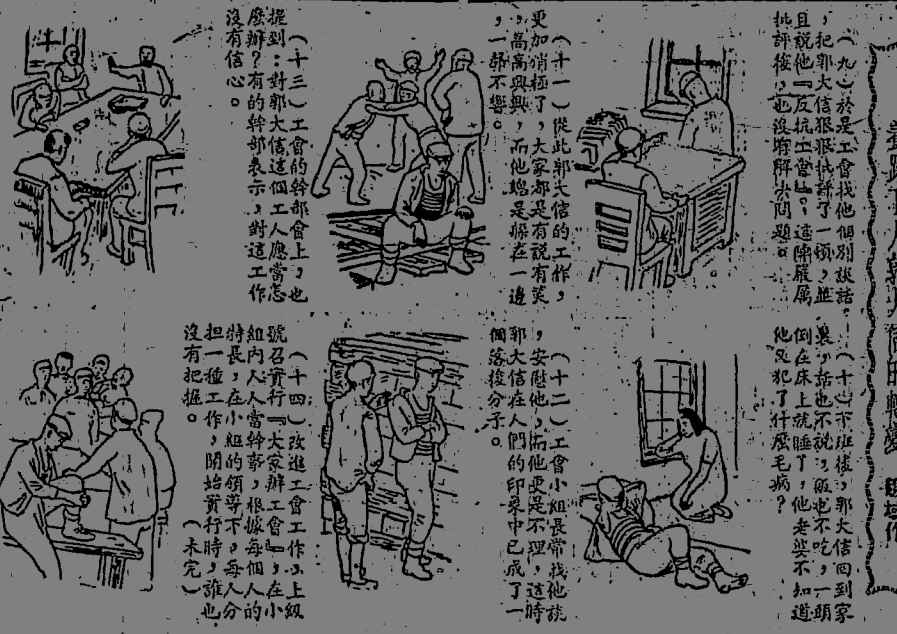 （九）於是工會找他個別談話
，把郭大信狠狠批評了一頓，並
且說他『反抗工會』。這陣嚴厲
批評後，也沒有解決問題。
（十）下班後，郭大信回到家
裏，話也不說，飯也不吃，一頭
倒在床上就睡了，他老婆不知道
他又犯了什麼毛病？
（十一）從此郭大信的工作，
更加消極了，大家都是有說有笑
，高高興興，而他總是躲在一邊
，一聲不響。
（十二）工會小組長常找他談
，安慰他，而他更是不理，這時
郭大信在人們的印象中已成了一
個落後分子。
（十三）工會的幹部會上，也
提到：對郭大信這個工人應當怎
麼辦？有的幹部表示，對這工作
沒有信心。
（十四）改進工會工作，上級
號召實行『大家辦工會』，在小
組內人人當幹事，根據每個人的
特長，在小組的領導下，每人分
担一種工作，開始實行時，誰也
沒有把握。
（未完）